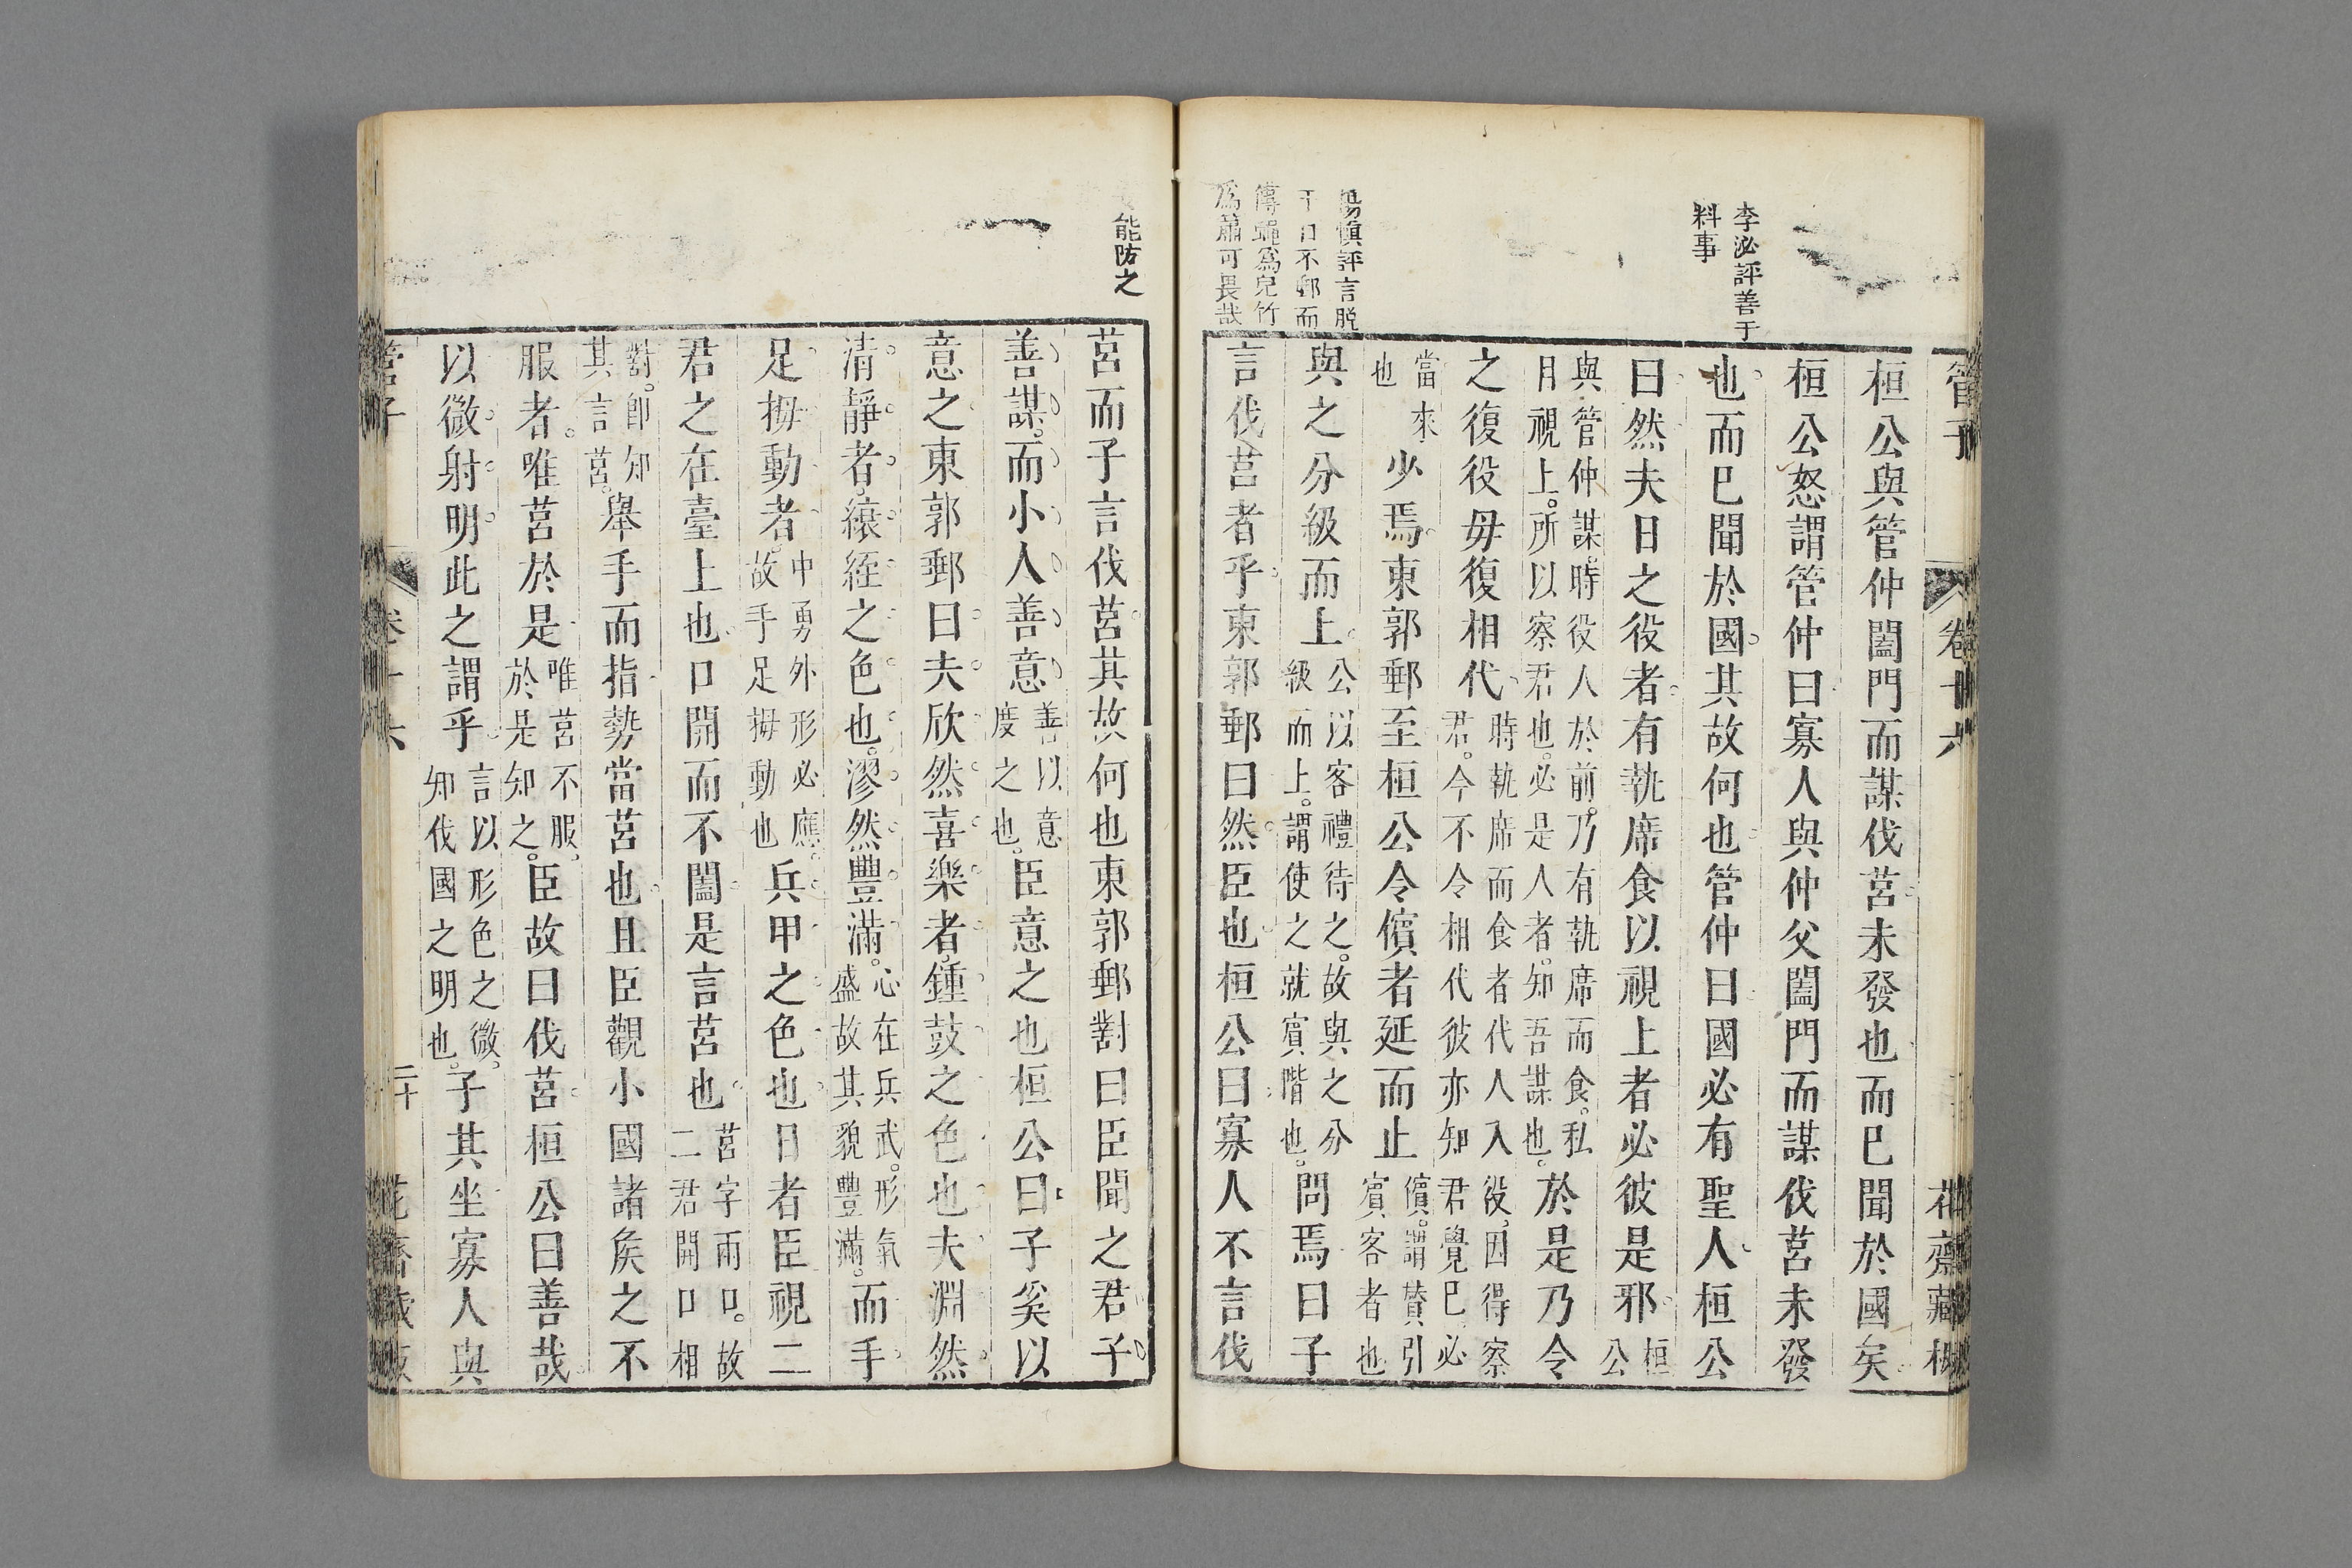 管子
卷十六
花齋藏板
李泌評善于
料事
楊慎評言脫
于口不郵而
傳蠅為兒竹
為蕭可畏哉
桓公與管仲闔門而謀伐莒未發也而巳聞於國矣
桓公怒謂管仲曰寡人與仲父闔門而謀伐莒未發
也而巳聞於國其故何也管仲曰國必有聖人桓公
曰然夫日之役者有執席食以視上者必彼是邪桓
公
與管仲謀時役人於前乃有執席而食私
目視上所以察君也必是人者知吾謀也於是乃令
之復役毋復相代時執席而食者代人入役因得察
君今不令相代彼亦知君覺巳必
當來
也少焉東郭郵至桓公令儐者延而止儐謂贊引
賓客者也
與之分級而上公以客禮待之故與之分
級而上謂使之就賓階也問焉曰子
言伐莒者乎東郭郵曰然臣也桓公曰寡人不言伐
能防之
莒而子言伐莒其故何也東郭郵對曰臣聞之君子
善謀而小人善意善以意
度之也臣意之也桓公曰子奚以
意之東郭郵曰夫欣然喜樂者鍾鼓之色也夫淵然
清靜者縗絰之色也漻然豐滿心在兵武形氣
盛故其貌豐滿而手
足拇動者中勇外形必應
故手足拇動也兵甲之色也日者臣視二
君之在臺上也口開而不闔是言莒也莒字兩口故
二君開口相
對即知
其言莒舉手而指勢當莒也且臣觀小國諸矦之不
服者唯莒於是唯莒不服
於是知之臣故曰伐莒桓公曰善哉
以微射明此之謂乎言以形色之微
知伐國之明也子其坐寡人與
管子
卷十六
二十
花齋藏板